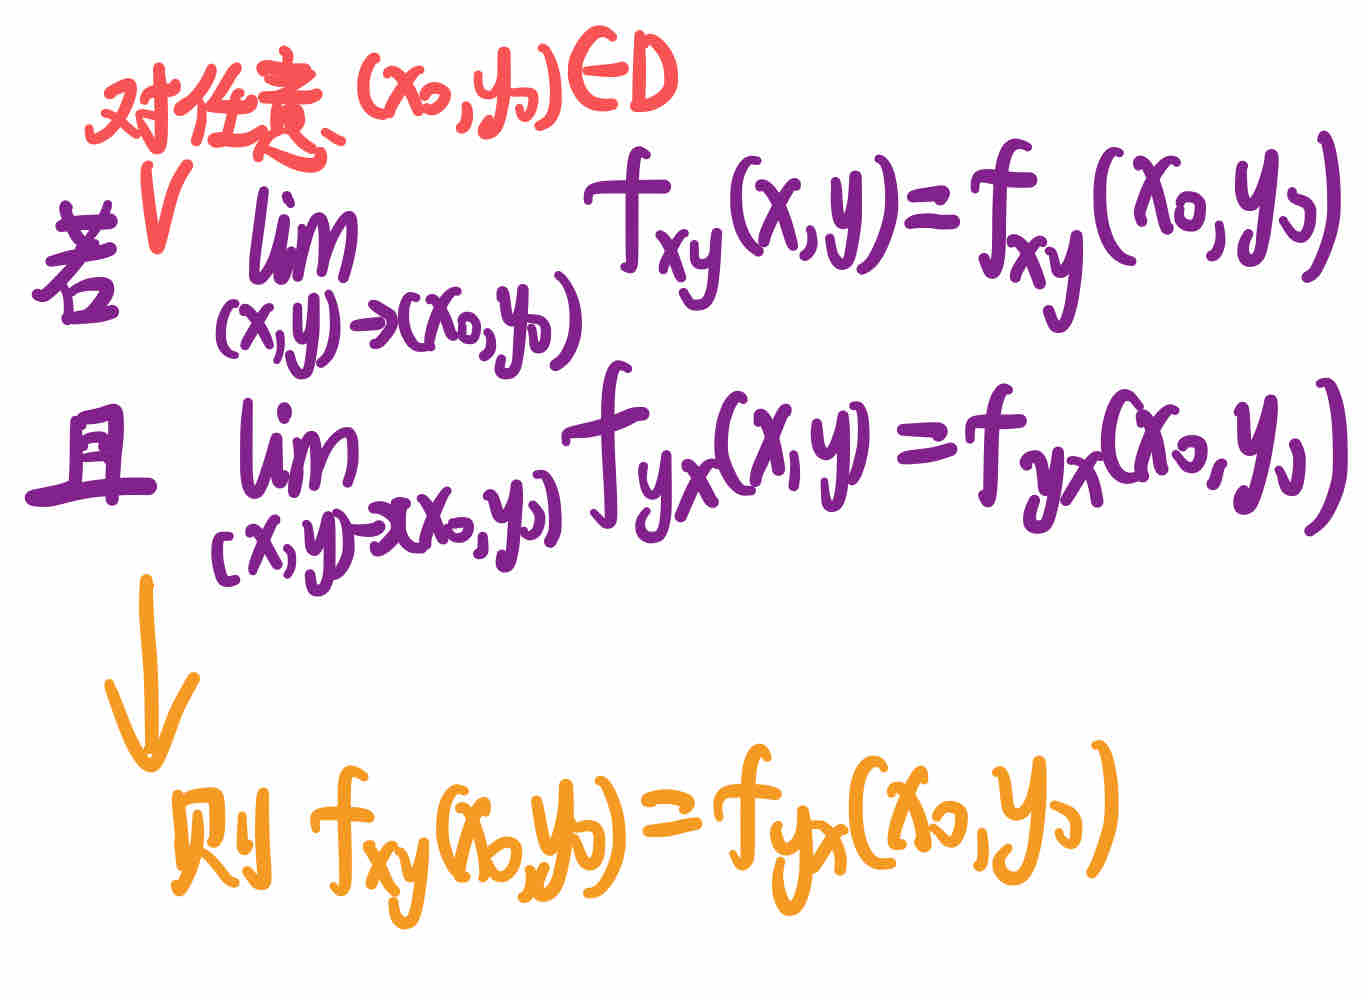 对任意 (x₀,y₀)∈D
若 lim f_xy(x,y)=f_xy(x₀,y₀)
(x,y)→(x₀,y₀)
且 lim f_yx(x,y)=f_yx(x₀,y₀)
(x,y)→(x₀,y₀)
则 f_xy(x₀,y₀)=f_yx(x₀,y₀)